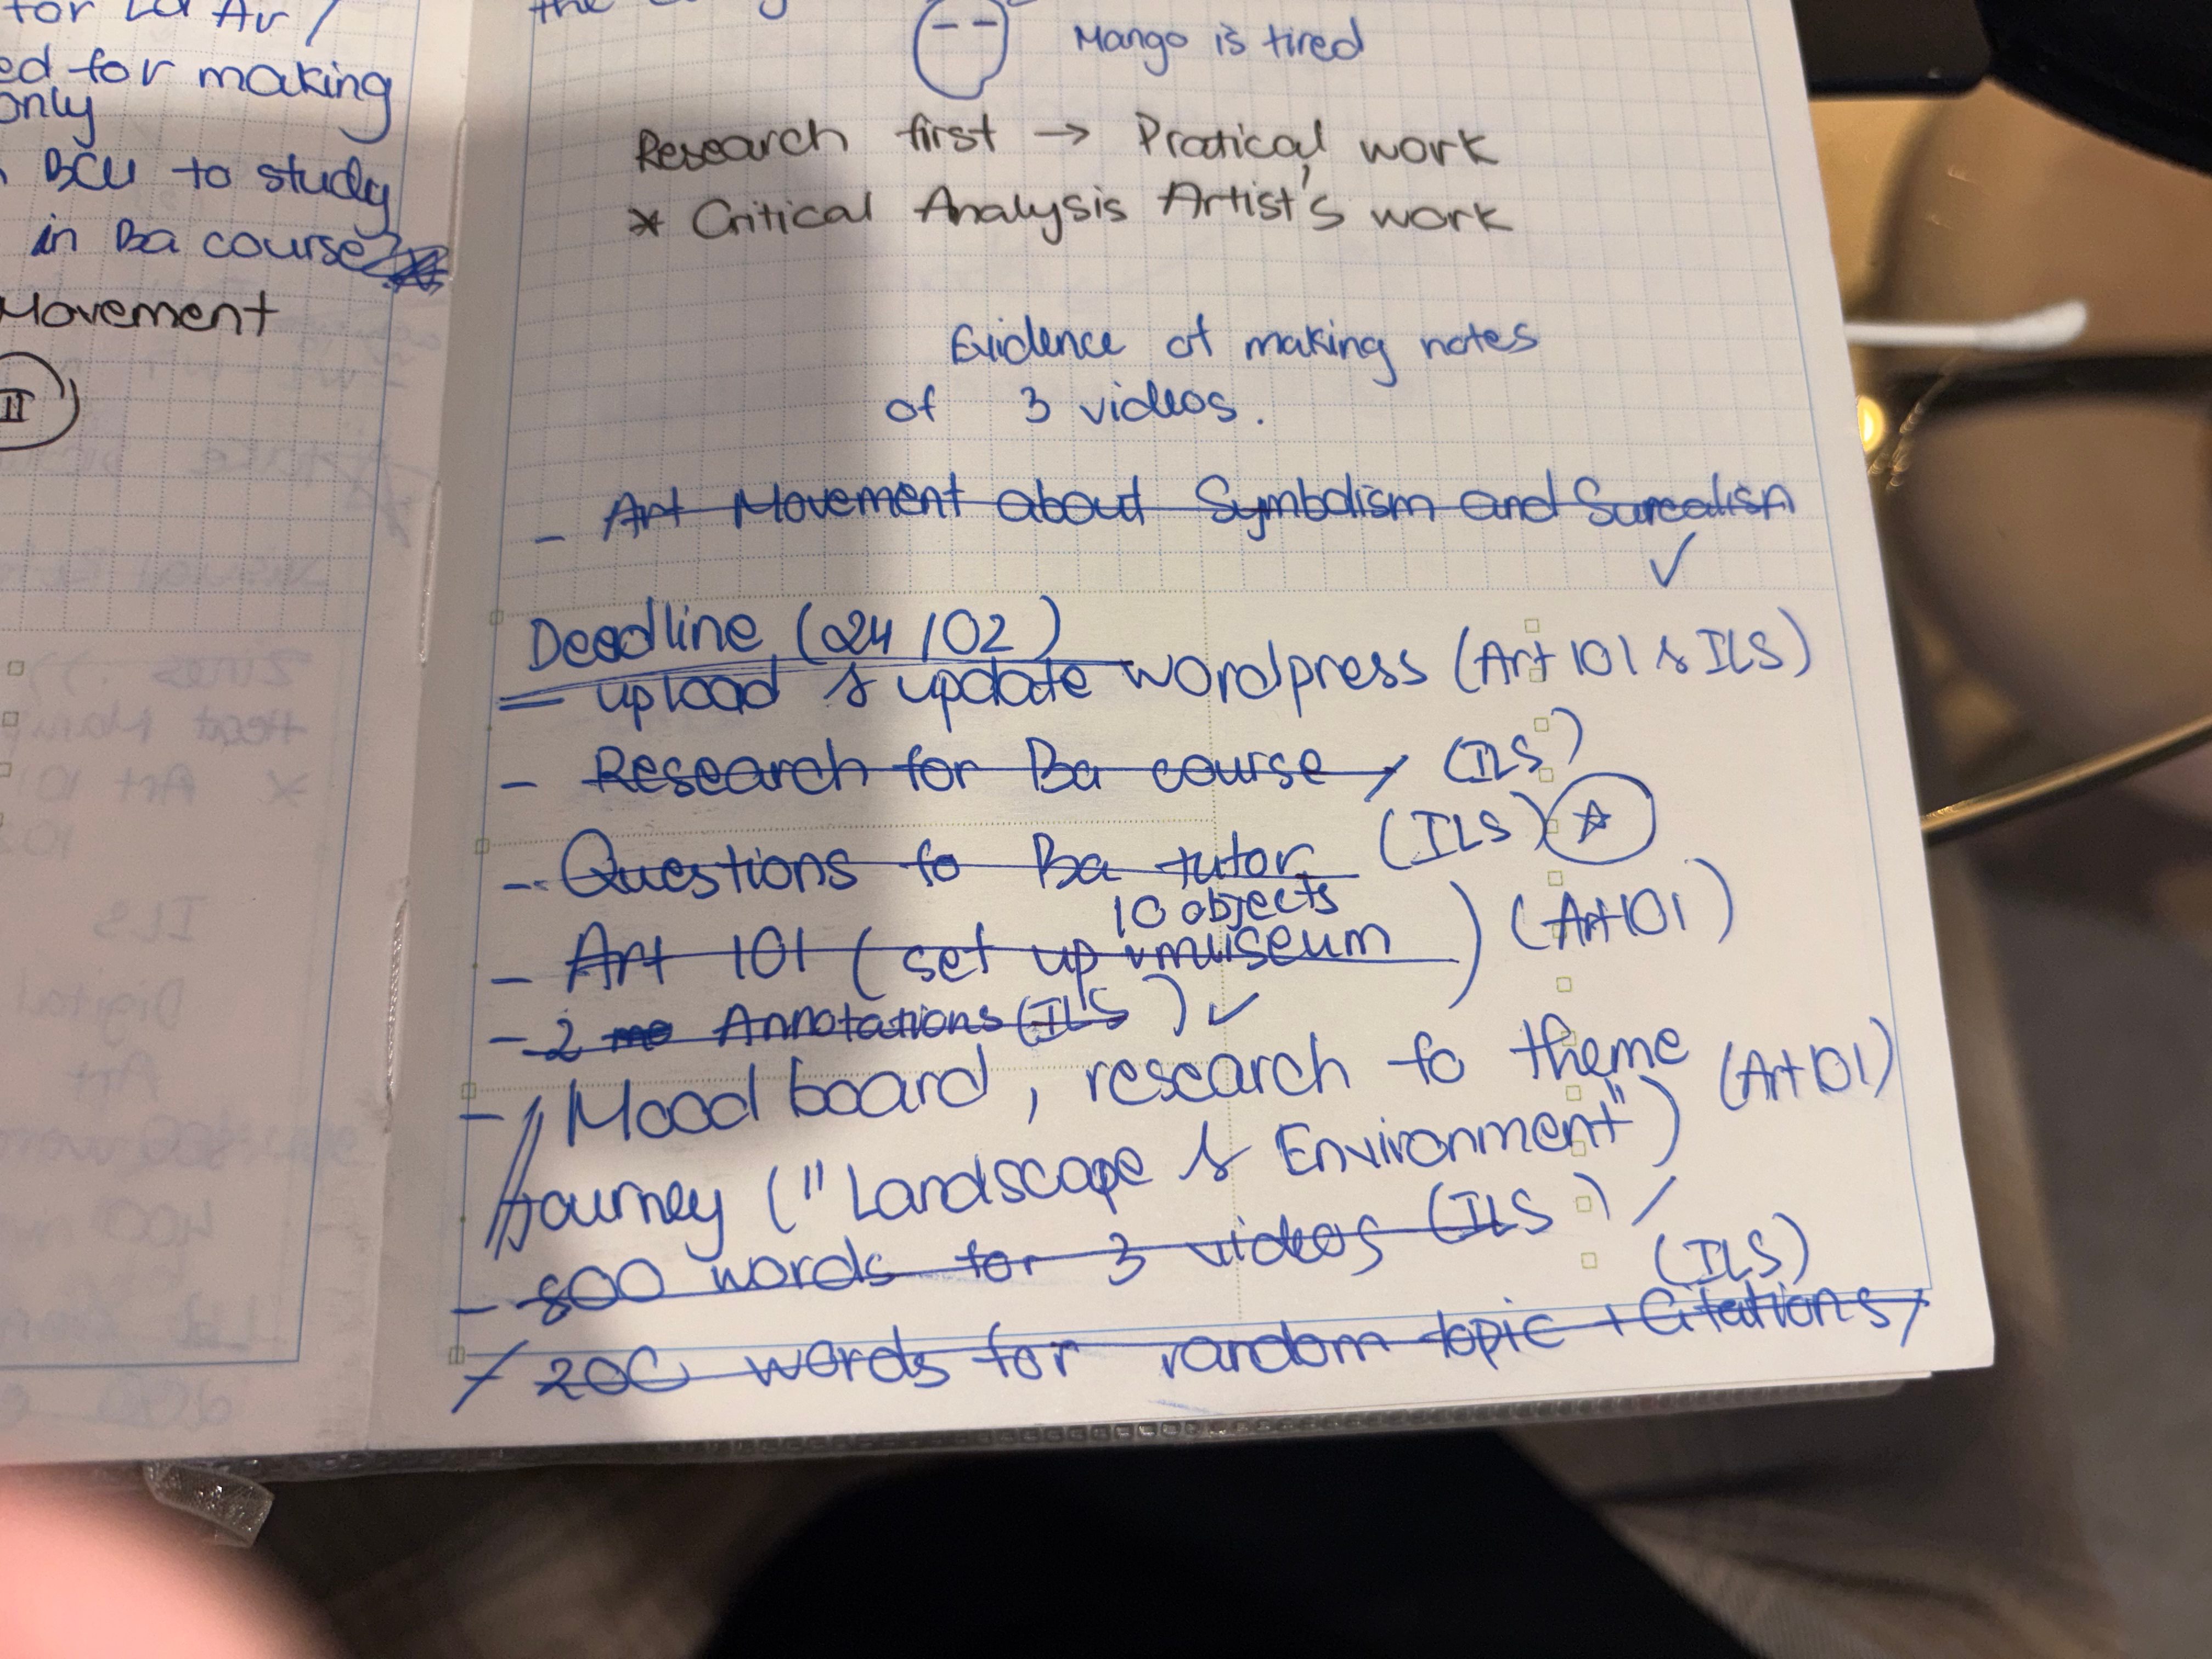 for
ed for making
only
BCU to study
in Ba course?
Movement
II
the
Mango is tired
Research first → Pratical work
* Critical Analysis Artist's work
Evidence of making notes
of 3 videos.
- Art Movement about Symbolism and Surealism
✓
Deadline (24/02)
- upload & update wordpress (Art 101 & ILS)
- Research for Ba course (ILS)
- Questions to Ba tutor (ILS) ☆
10 objects
- Art 101 (set up museum) (Art 101)
- 2 Annotations (ILS) ✓
- Mood board, research to theme (Art 101)
journey ("Landscape & Environment")
- 800 words for 3 videos (ILS)
(ILS)
200 words for random topic + Citations